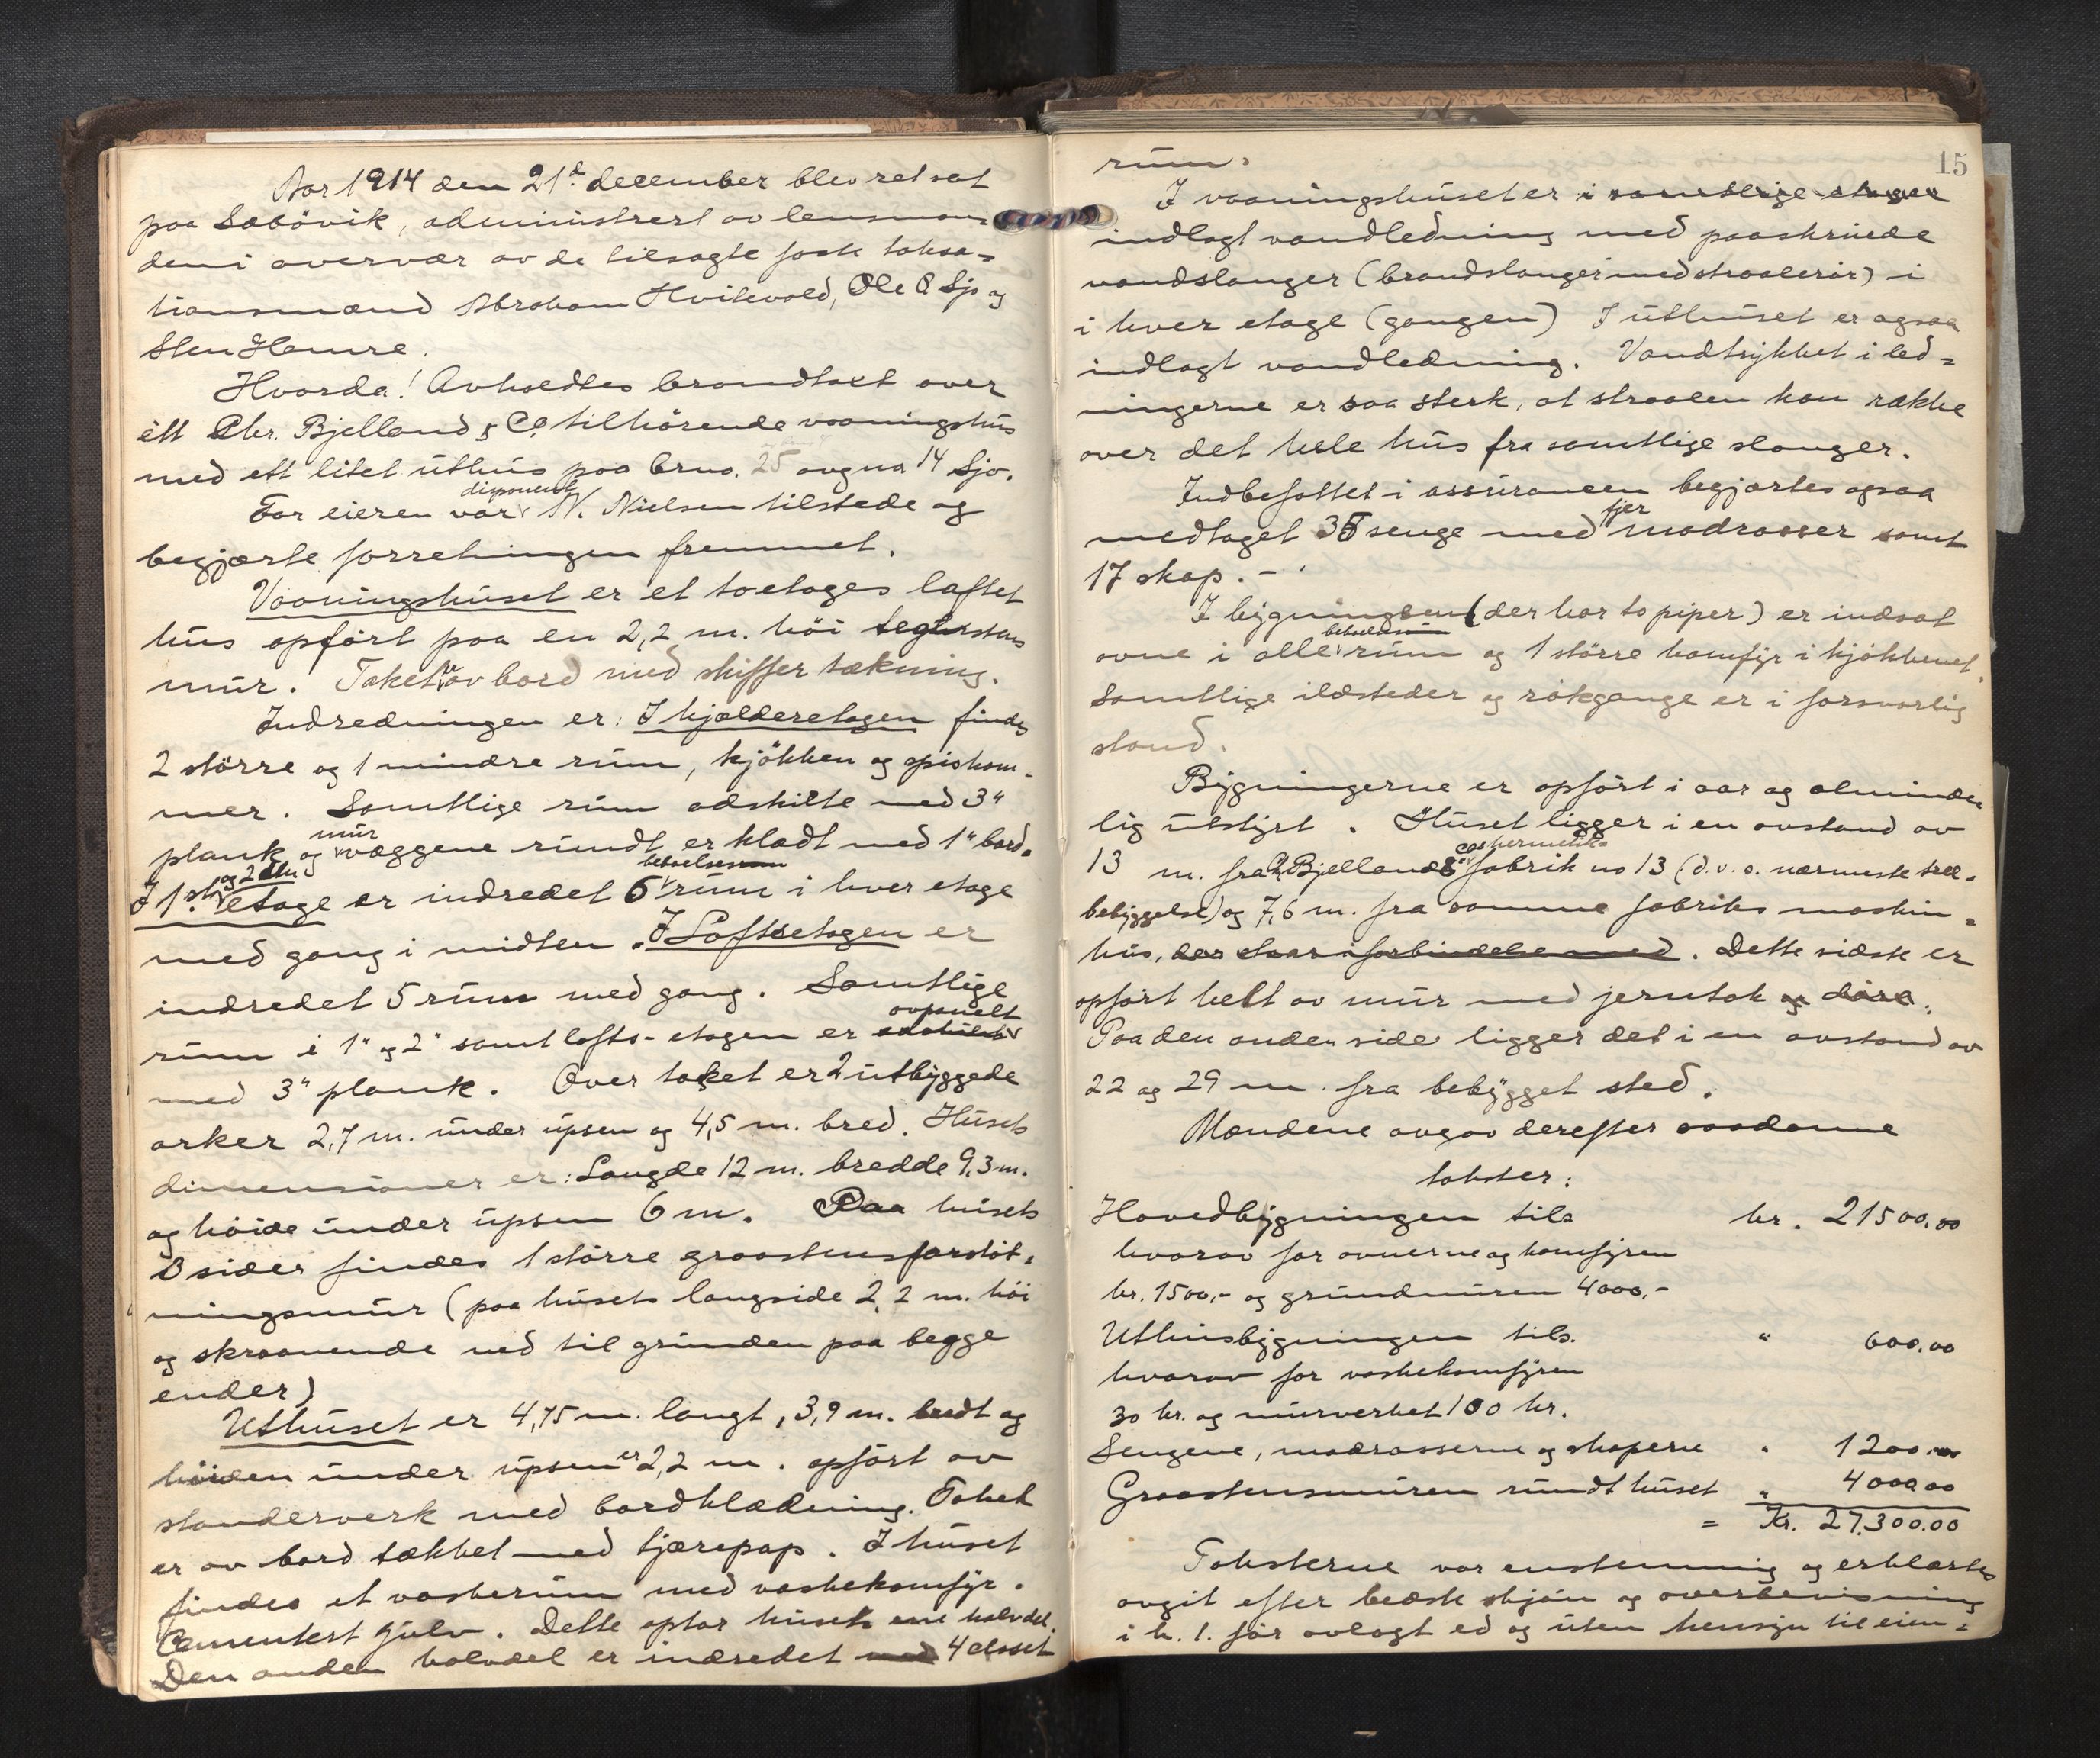 Aar 1914 den 21de december blev ret sat
paa Sæbövik, administrert av lensman-
den i overvær av de tilsagte faste taksa-
tionsmænd Abraham Hvitevold, Ole O Sjo og
Sten Hamre.
Hvorda! Avholdtes brandtaxt over
ett Chr. Bjelland & Co. tilhörende vaaningshus
med ett litet uthus paa brno. 25 avgno 14 Sjo.
disponent
For eieren var N. Nielsen tilstede og
begjærte forretningen fremmet.
Vaaningshuset er et toetages laftet
hus opfört paa en 2,2 m. höi
mur. Taket av bord med skiffer tækning.
Indredningen er: I kjælderetagen findes
2 större og 1 mindre rum, kjökken og spiskam-
mer. Samtlige rum adskilte med 3"
mur
plank og væggene rundt er klædt med 1" bord.
og 2den beboelsesrum
I 1ste etage er indredet 6 rum i hver etage
med gang i midten. I Loftsetagen er
indredet 5 rum med gang. Samtlige
avpanelt
rum i 1" og 2" samt lofts-etagen er
med 3" plank. Over taket er 2 utbyggede
arker 2,7 m. under upsen og 4,5 m. bred. Husets
dimensioner er: Længde 12 m. bredde 9,3 m.
og höide under upsen 6 m. Paa husets
3 sider findes 1 större graastensforstöt-
ningsmur (paa husets langside 2,2 m. höi
og skraanende ned til grunden paa begge
ender)
Uthuset er 4,75 m. langt, 3,9 m. bredt og
höiden under upsen er 2,2 m. opfört av
standerverk med bordklædning. Taket
er av bord tækket med tjærepap. I huset
findes et vaskerum med vaskekomfyr.
Cementert gulv. Dette optar husets ene halvdel.
Den anden halvdel er indredet med 4 closet
15
rum.
I vaaningshuset er i samtlige etager
indlagt vandledning med paaskruede
vandslanger (brandslanger med straalerör) i
i hver etage (gangen) I uthuset er ogsaa
indlagt vandledning. Vandtrykket i led-
ningerne er saa sterk, at straalen kan række
over det hele hus fra samtlige slanger.
Indbefattet i assurancen begjærtes ogsaa
fjer
medtaget 35 senge med madrasser samt
17 skap. -
I bygningen (der har to piper) er indsat
beboelses
ovne i alle rum og 1 större komfyr i kjökkenet.
Samtlige ildsteder og rökgange er i forsvarlig
stand.
Bygningerne er opfört i aar og alminde-
lig utstyrt. Huset ligger i en avstand av
13 m. fra C. Bjelland & Cos hermetik-fabrik no 13 (d. v. s. nærmeste træ-
bebyggelse) og 7,6 m. fra samme fabriks maskin-
hus, der staar i forbindelse med. Dette sidste er
opfört helt av mur med jerntak og döre.
Paa den anden side ligger det i en avstand av
22 og 29 m. fra bebygget sted.
Mændene avgav derefter saadanne
takster:
Hovedbygningen tils kr. 21500.00
hvorav for ovnerne og komfyren
kr. 1500,- og grundmuren 4000,-
Uthusbygningen tils. " 600.00
hvorav for vaskekomfyren
30 kr. og murverket 100 kr.
Sengene, madrasserne og skapene " 1200.00
Graastensmuren rundt huset " 4000.00
= Kr. 27.300.00
Taksterne var enstemmig og erklærtes
avgit efter bedste skjön og overbevisning
i h. t. för avlagt ed og uten hensyn til eien-